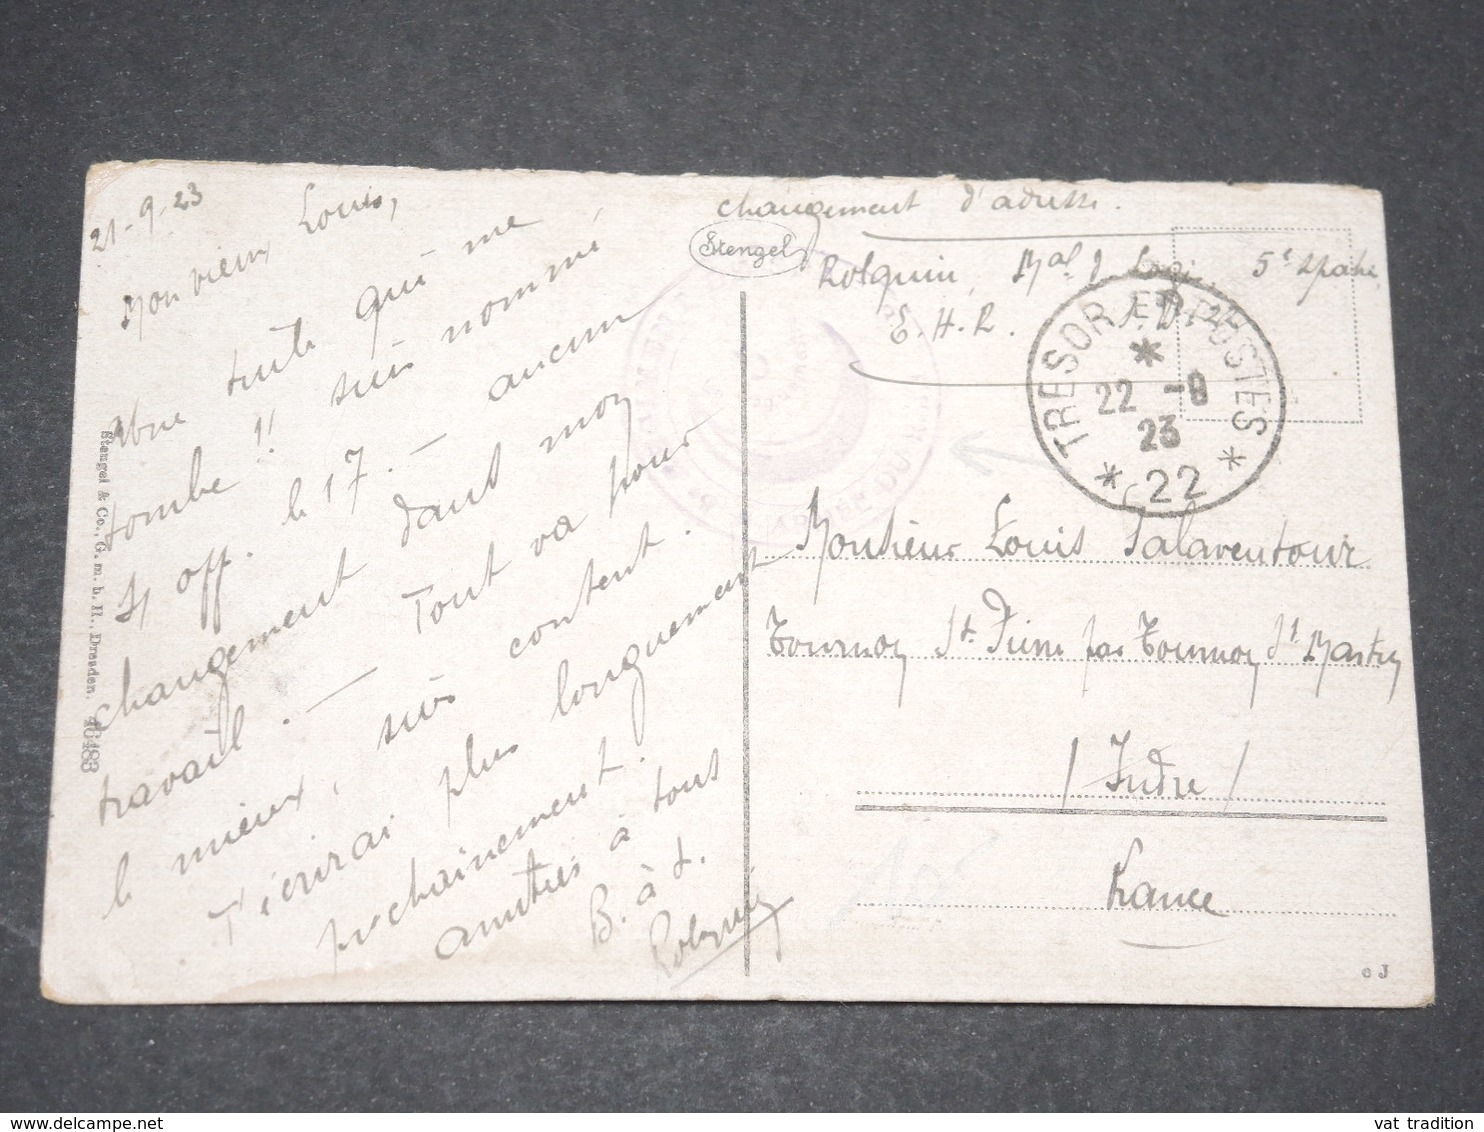 21-9-23
Mon vieux Louis,
Une tuile qui me
tombe !! suis nommé
off. le 17. — aucun
changement dans mon
travail. — Tout va pour
le mieux, suis content.
T'écrirai plus longuement
prochainement.
amitiés à tous
B. à t.
Rolquin
Stengel & Co., G. m. b. H., Dresden. 46483
changement d'adresse.
Stengel
Rolquin, Mal d. Logis, 5e Spahis
E.H.R.
TRESOR ET POSTES
22 -9
23
* 22 *
ARMEE DU RHIN
Monsieur Louis Palaventour
Tournon St. Pierre par Tournon St Martin
/ Indre /
France
c J
vat tradition